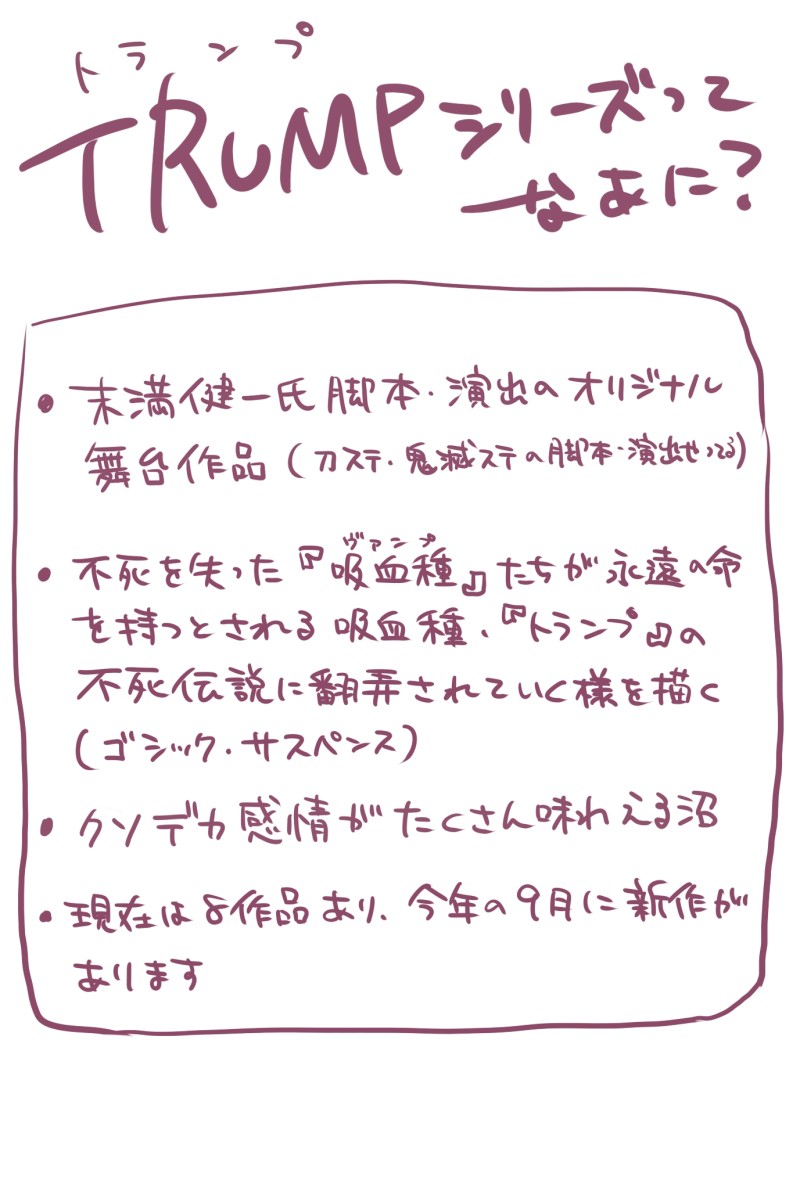 トランプ
TRUMPシリーズって
なあに?
• 末満健一氏 脚本・演出のオリジナル
舞台作品(刀ステ・鬼滅ステの脚本・演出もつてる)
ヴァンプ
• 不死を失った『吸血種』たちが永遠の命
を持つとされる吸血種、『トランプ』の
不死伝説に翻弄されていく様を描く
(ゴシック・サスペンス)
• クソデカ感情がたくさん味わえる沼
• 現在は8作品あり、今年の9月に新作が
あります